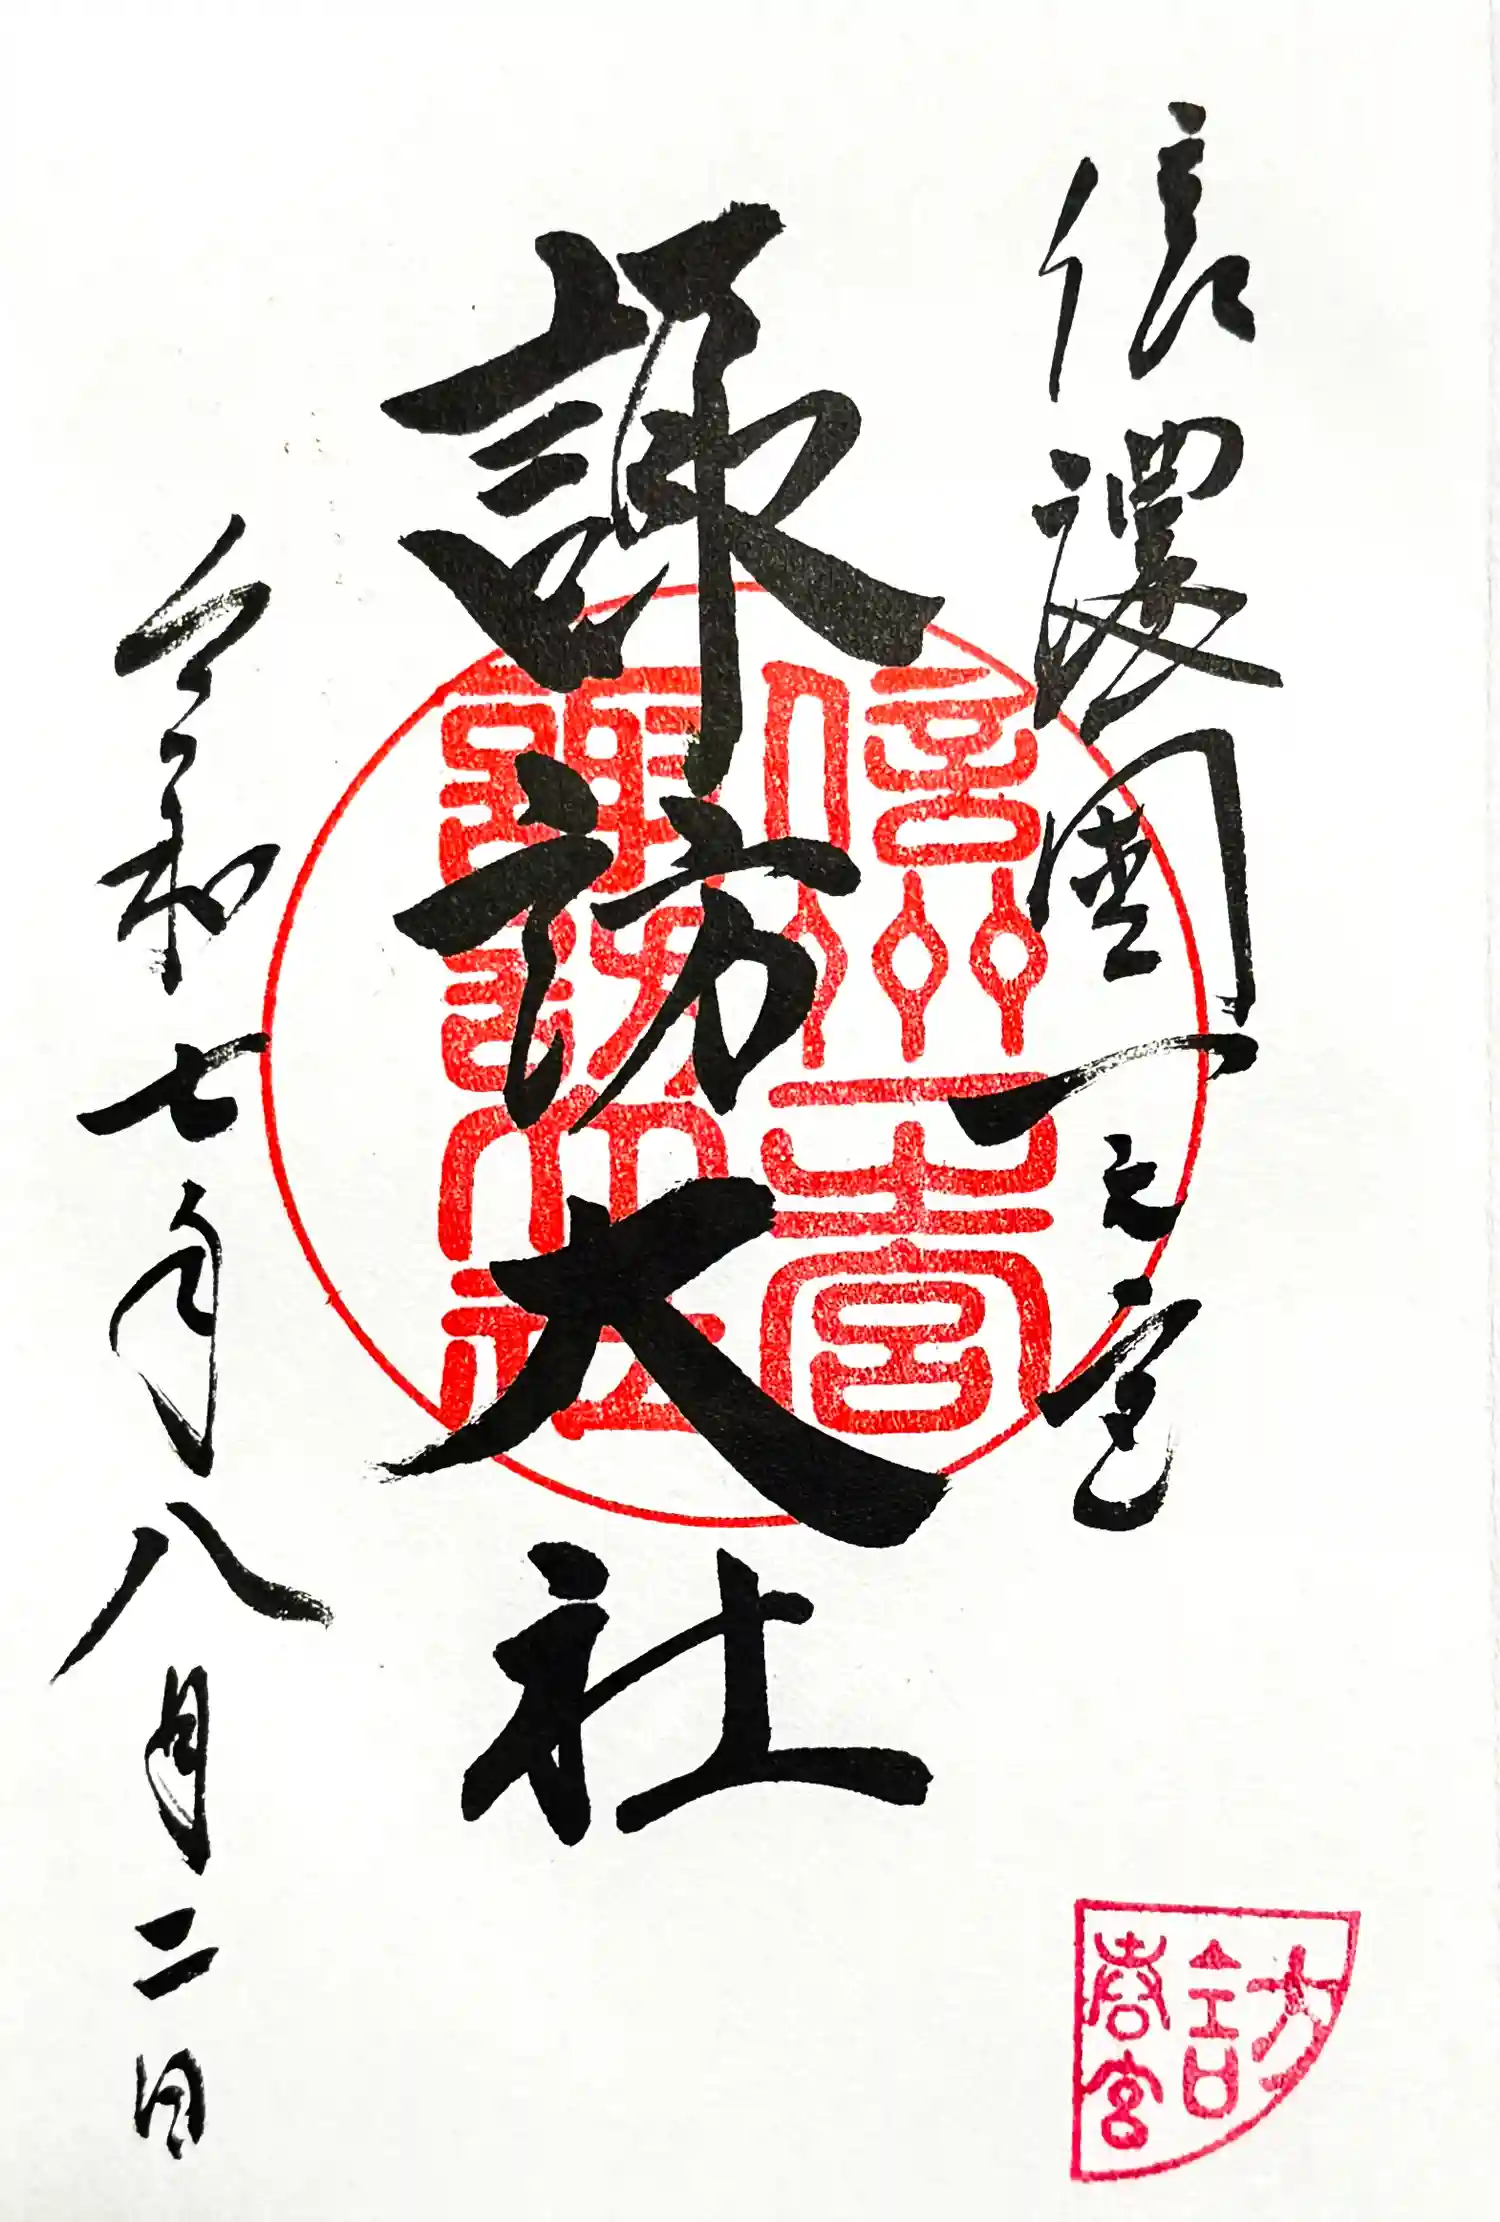 信濃國一之宮
諏訪大社
令和七年八月二日
信州一之宮
諏訪大社
訪
春宮